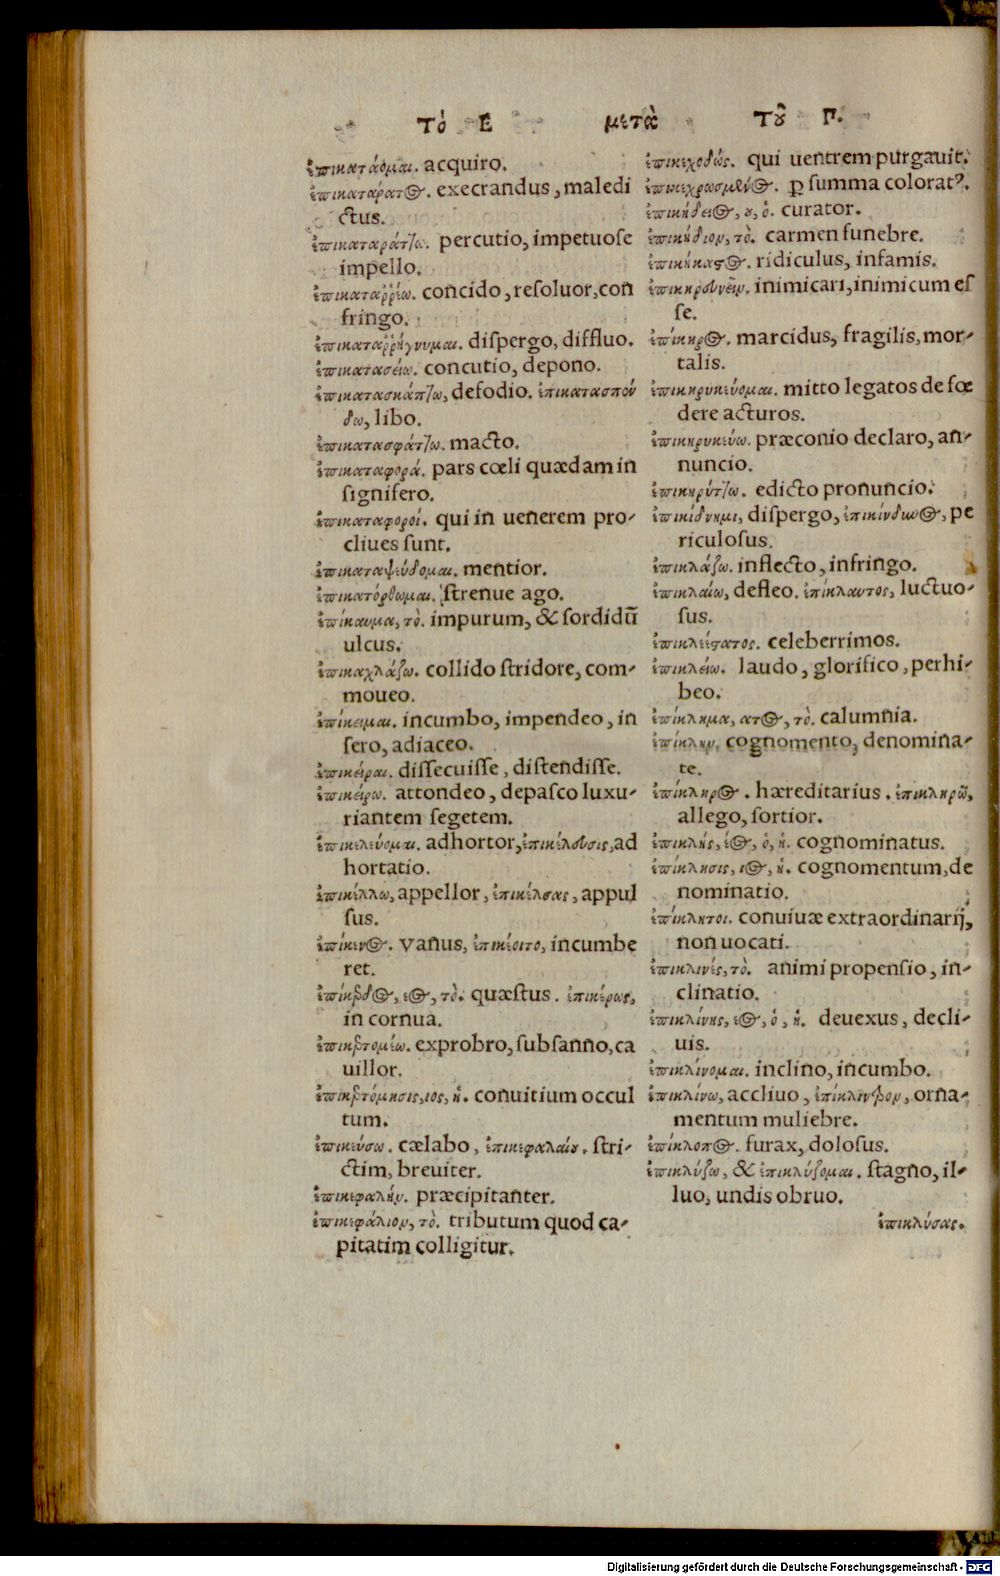 Τὸ Ε μετὰ τοῦ Π.
ἐπικατάομαι. acquiro.
ἐπικατάρατος. execrandus, maledi
ctus.
ἐπικαταράτζω. percutio, impetuoſe
impello.
ἐπικαταῤῥέω. concido, reſoluor, con
fringo.
ἐπικαταῤῥήγνυμαι. diſpergo, diffluo.
ἐπικατασείω. concutio, depono.
ἐπικατασκάπτζω, defodio. ἐπικατασπού
δω, libo.
ἐπικατασφάτζω. macto.
ἐπικαταφορά. pars cœli quædam in
ſignifero.
ἐπικαταφοροί. qui in uenerem pro-
cliues ſunt.
ἐπικαταψεύδομαι. mentior.
ἐπικατόρθωμαι. ſtrenue ago.
ἐπίκαυμα, τὸ. impurum, & ſordidū
ulcus.
ἐπικαχλάζω. collido ſtridore, com-
moueo.
ἐπίκειμαι. incumbo, impendeo, in
ſero, adiaceo.
ἐπικείραι. diſſecuiſſe, diſtendiſſe.
ἐπικείρω. attondeo, depaſco luxu-
riantem ſegetem.
ἐπικελεύομαι. adhortor, ἐπικέλευσις, ad
hortatio.
ἐπικέλλω, appellor, ἐπικέλσας, appul
ſus.
ἐπίκενος. vanus, ἐπικέοιτο, incumbe
ret.
ἐπίκερδος, εος, τὸ. quæſtus. ἐπικέρως,
in cornua.
ἐπικερτομέω. exprobro, ſubſanno, ca
uillor.
ἐπικερτόμησις, ιος, ἡ. conuitium occul
tum.
ἐπικεύσω. cælabo, ἐπικεφαλαίου. ſtri-
ctim, breuiter.
ἐπικεφαλήν. præcipitanter.
ἐπικεφάλιον, τὸ. tributum quod ca-
pitatim colligitur.
ἐπικεχοδώς. qui uentrem purgauit.
ἐπικεχρωσμένος. ꝑ ſumma colorat⁹.
ἐπικήδειος, ου, ὁ. curator.
ἐπικήδιον, τὸ. carmen funebre.
ἐπικήκαστος. ridiculus, infamis.
ἐπικηρευνεῖν. inimicari, inimicum eſ
ſe.
ἐπίκηρος. marcidus, fragilis, mor-
talis.
ἐπικηρυκεύομαι. mitto legatos de fœ
dere acturos.
ἐπικηρυκεύω. præconio declaro, an-
nuncio.
ἐπικηρύτζω. edicto pronuncio.
ἐπικίδνημι, diſpergo, ἐπικίνδυνος, pe
riculoſus.
ἐπικλάζω. inflecto, infringo.
ἐπικλαίω, defleo. ἐπίκλαυτος, luctuo-
ſus.
ἐπικλείστατος. celeberrimos.
ἐπικλείω. laudo, glorifico, perhi-
beo.
ἐπίκλημα, ατος, τὸ. calumnia.
ἐπίκλην. cognomento, denomina-
te.
ἐπίκληρος. hæreditarius. ἐπικληρῶ,
allego, ſortior.
ἐπικλής, έος, ὁ, ἡ. cognominatus.
ἐπίκλησις, ιος, ἡ. cognomentum, de
nominatio.
ἐπίκλητοι. conuiuæ extraordinarij,
non uocati.
ἐπικλινές, τὸ. animi propenſio, in-
clinatio.
ἐπικλίνης, εος, ὁ, ἡ. deuexus, decli-
uis.
ἐπικλίνομαι. inclino, incumbo.
ἐπικλίνω, accliuo, ἐπίκλιντρον, orna-
mentum muliebre.
ἐπίκλοπος. furax, doloſus.
ἐπικλύζω, & ἐπικλύζομαι. ſtagno, il-
luo, undis obruo.
ἐπικλύσας.
Digitalisierung gefördert durch die Deutsche Forschungsgemeinschaft - DFG